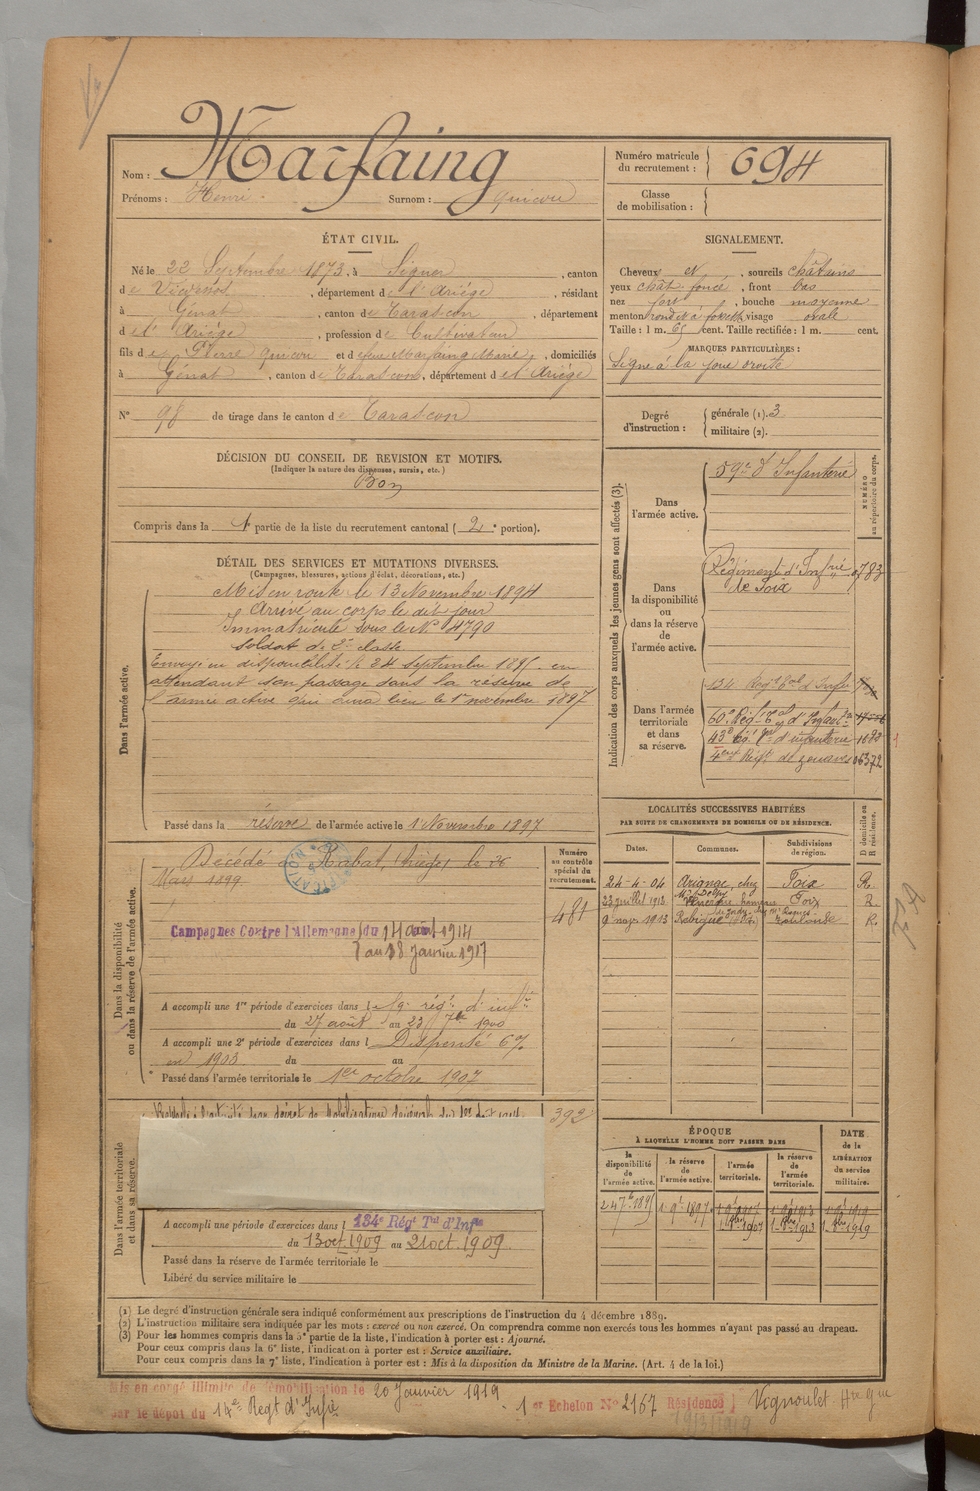 Nom : Marfaing
Prénoms : Henri Surnom : Quicou
ÉTAT CIVIL.
Né le 22 Septembre 1873, à Siguer, canton
de Vicdessos, département de l'Ariège, résidant
à Génat, canton de Tarascon, département
de l'Ariège, profession de Cultivateur
fils de Pierre Quicou et de feue Marfaing Marie, domiciliés
à Génat, canton de Tarascon, département de l'Ariège
N° 98 de tirage dans le canton de Tarascon
DÉCISION DU CONSEIL DE REVISION ET MOTIFS.
(Indiquer la nature des dispenses, sursis, etc.)
Bon
Compris dans la 1e partie de la liste du recrutement cantonal (2e portion).
DÉTAIL DES SERVICES ET MUTATIONS DIVERSES.
(Campagnes, blessures, actions d'éclat, décorations, etc.)
Dans l'armée active.
Mis en route le 13 Novembre 1894
Arrivé au corps le dit jour
Immatriculé sous le N° 4790
Soldat de 2e classe
Envoyé en disponibilité le 24 septembre 1895 en
attendant son passage dans la réserve de
l'armée active qui aura lieu le 1er novembre 1897
Passé dans la réserve de l'armée active le 1 Novembre 1897
Dans la disponibilité
ou dans la réserve de l'armée active.
Numéro
au contrôle
spécial du
recrutement.
Décédé à Rabat, (Ariège) le 26
Mars 1899
481
Campagnes Contre l'Allemagne du 14 août 1914
au 18 Janvier 1917
A accompli une 1re période d'exercices dans l 59e rég.t d'inf.ie
du 27 août au 23 7bre 1900
A accompli une 2e période d'exercices dans l Dispensé 6%
en 1903 du au
Passé dans l'armée territoriale le 1er octobre 1907
Dans l'armée territoriale
et dans sa réserve.
392
A accompli une période d'exercices dans l 134e Régt Tal d'Infie
du 13 oct. 1909 au 21 oct. 1909
Passé dans la réserve de l'armée territoriale le
Libéré du service militaire le
Numéro matricule
du recrutement : 694
Classe
de mobilisation :
SIGNALEMENT.
Cheveux et, sourcils châtains
yeux chât. foncé, front bas
nez fort, bouche moyenne
menton rond et à fossette, visage ovale
Taille : 1 m. 65 cent. Taille rectifiée : 1 m. cent.
MARQUES PARTICULIÈRES :
Signe à la joue droite
Degré
d'instruction :
générale (1). 3
militaire (2).
Indication des corps auxquels les jeunes gens sont affectés (3).
NUMÉRO
au répertoire du corps.
Dans
l'armée active.
59e d'Infanterie
Dans
la disponibilité
ou
dans la réserve
de
l'armée active.
Régiment d'Inf.ie
de Foix
Dans l'armée
territoriale
et dans
sa réserve.
134 Rég.t T.al d'Inf.ie
60e Rég.t
d'infanterie
4e Rég.t de zouaves
LOCALITÉS SUCCESSIVES HABITÉES
PAR SUITE DE CHANGEMENTS DE DOMICILE OU DE RÉSIDENCE.
D domicile ou
R résidence.
Dates. Communes. Subdivisions
de région.
24-4-04 Arignac, chez Foix R.
23 juillet 1912 Foix R.
9 mars 1913 Toulouse R.
ÉPOQUE
À LAQUELLE L'HOMME DOIT PASSER DANS
DATE
de la
LIBÉRATION
du service
militaire.
la
disponibilité
de
l'armée active.
la réserve
de
l'armée active.
l'armée
territoriale.
la réserve
de
l'armée
territoriale.
(1) Le degré d'instruction générale sera indiqué conformément aux prescriptions de l'instruction du 4 décembre 1889.
(2) L'instruction militaire sera indiquée par les mots : exercé ou non exercé. On comprendra comme non exercés tous les hommes n'ayant pas passé au drapeau.
(3) Pour les hommes compris dans la 5e partie de la liste, l'indication à porter est : Ajourné.
Pour ceux compris dans la 6e liste, l'indication à porter est : Service auxiliaire.
Pour ceux compris dans la 7e liste, l'indication à porter est : Mis à la disposition du Ministre de la Marine. (Art. 4 de la loi.)
Mis en congé illimité de démobilisation le 20 Janvier 1919
par le dépôt du 14e Regt d'Infie
1er Echelon N° 2167 Résidence Vignoulet Hte Gne
19/3/1919